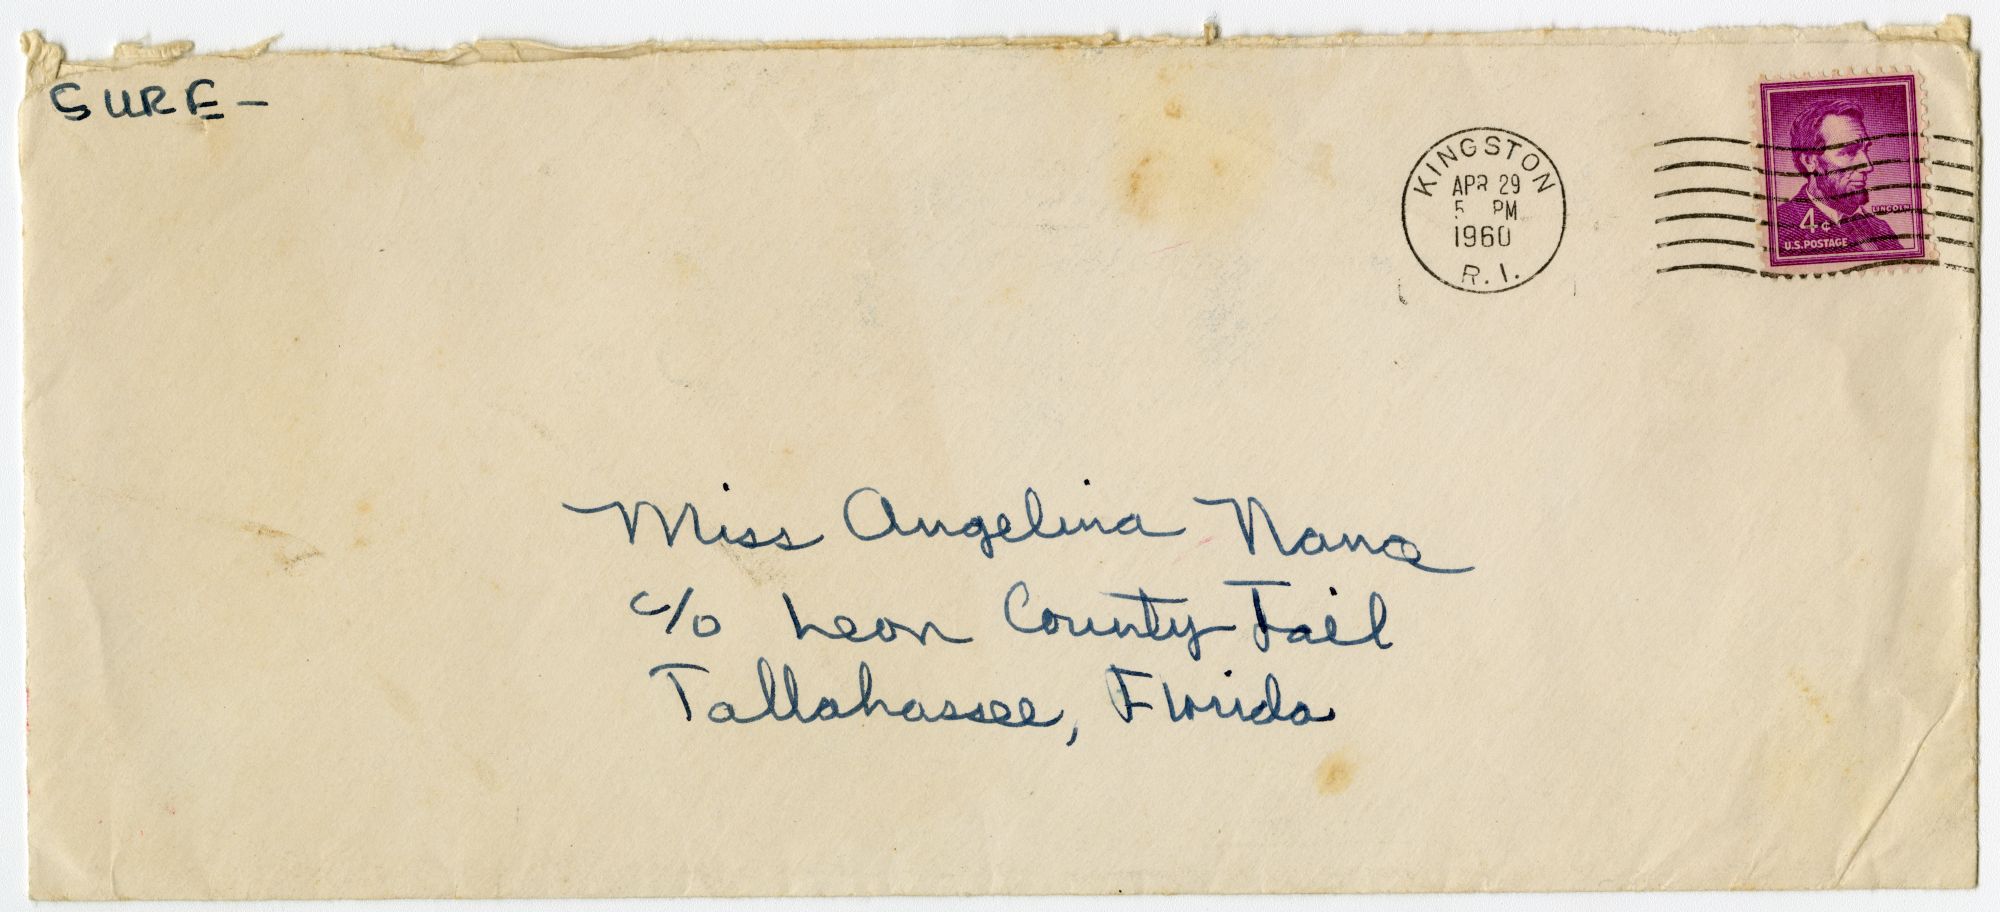 SURE –
KINGSTON
APR 29
5 PM
1960
R.I.
LINCOLN
4¢
U.S. POSTAGE
Miss Angelina Nance
c/o Leon County Jail
Tallahassee, Florida